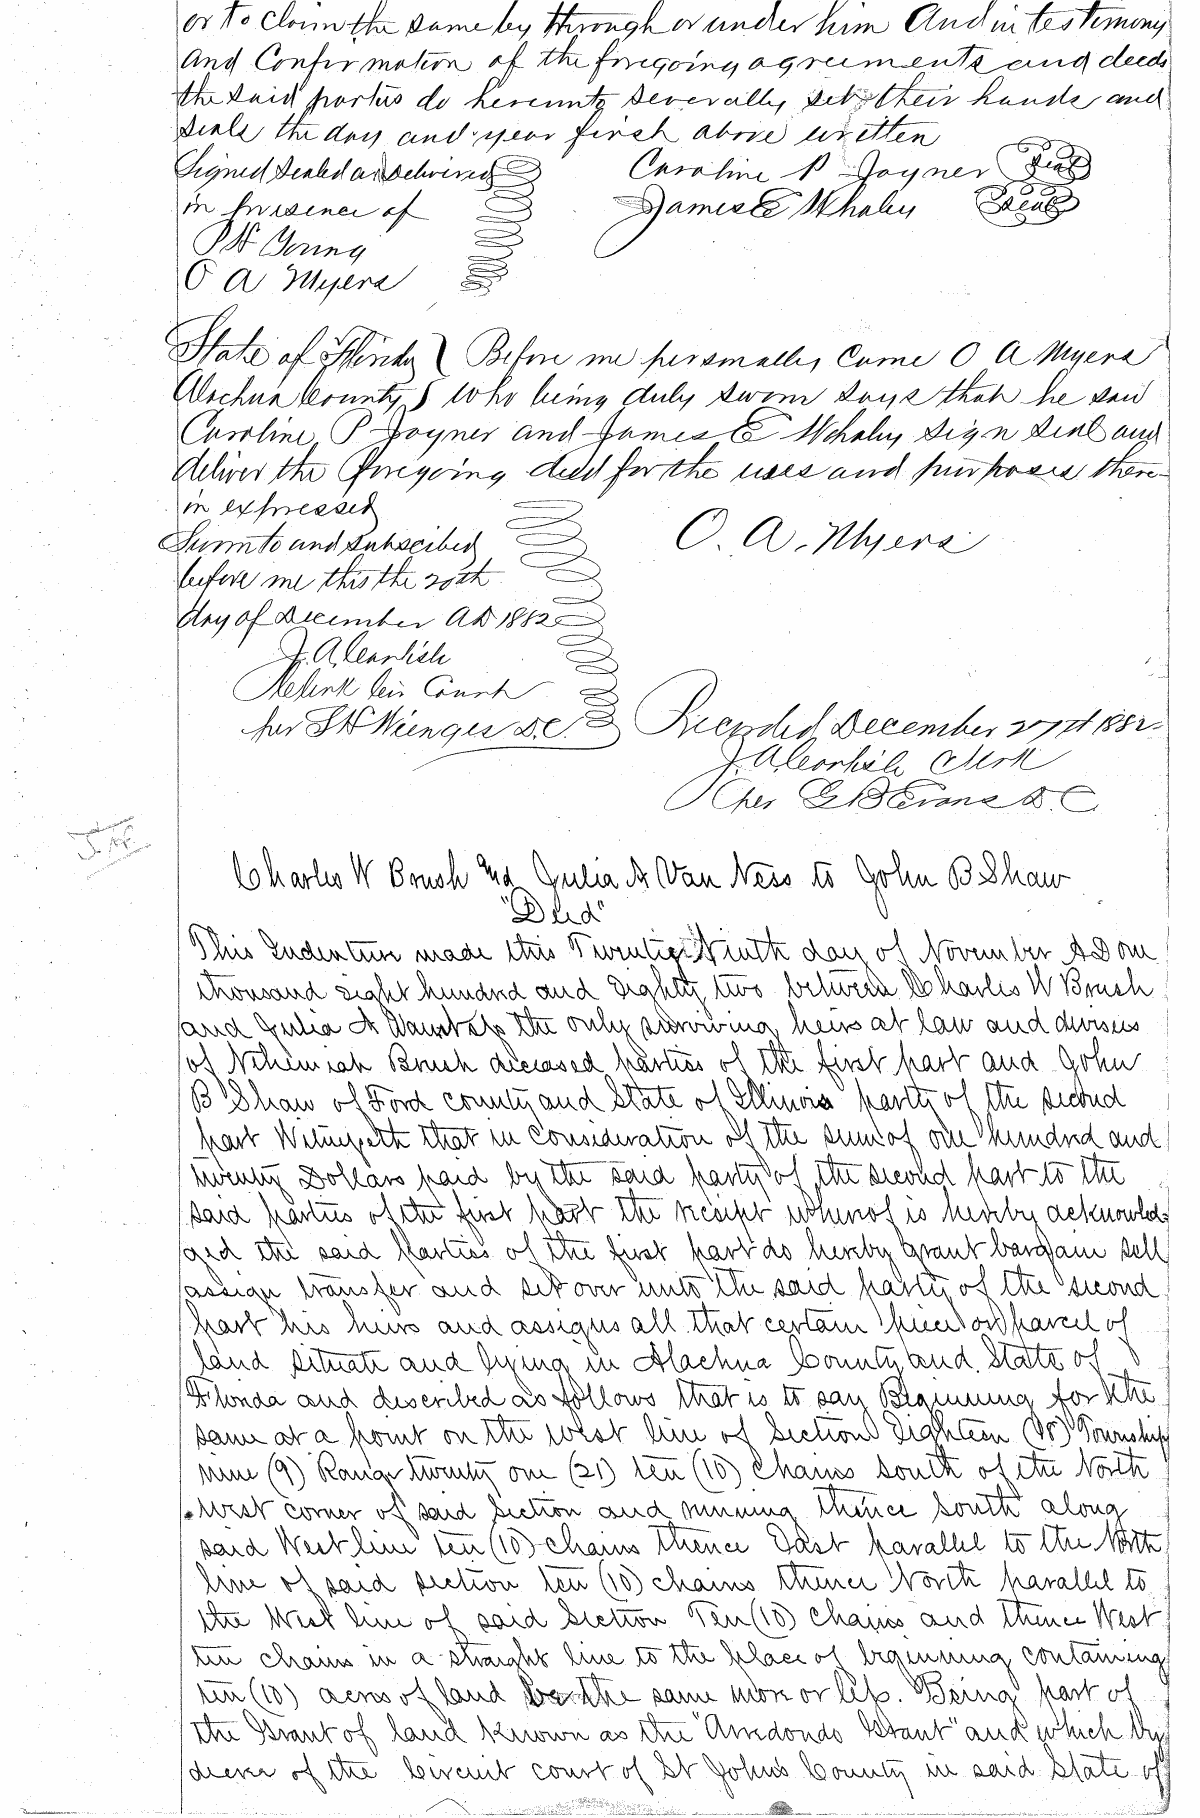 or to claim the same by through or under him And in testimony
and Confirmation of the foregoing agreements and deeds
the said parties do hereunto severally set their hands and
seals the day and year first above written
Signed Sealed and delivered
Caroline P Joyner Seal
in presence of
James E Whaley Seal
P H Young
O A Myers
State of Florida } Before me personally came O A Myers
Alachua County } who being duly sworn says that he said
Caroline P Joyner and James E Whaley sign seal and
deliver the foregoing deed for the uses and purposes there-
in expressed
O. A. Myers
Sworn to and subscribed
before me this the 20th
day of December AD 1882
J. A. Carlisle
Clerk Cir Court
per S H Wienges D.C.
Recorded December 27th 1882
J. A. Carlisle Clerk
per G B Evans D. C.
Charles W Brush and Julia A Van Ness to John B Shaw
"Deed"
This Indenture made this Twenty Ninth day of November A D one
thousand eight hundred and Eighty two between Charles W Brush
and Julia A Vanness the only surviving heirs at law and devisees
of Nehemiah Brush deceased parties of the first part and John
B Shaw of Ford county and State of Illinois party of the second
part Witnesseth that in consideration of the sum of one hundred and
twenty Dollars paid by the said party of the second part to the
said parties of the first part the receipt whereof is hereby acknowled-
ged the said parties of the first part do hereby grant bargain sell
assign transfer and set over unto the said party of the second
part his heirs and assigns all that certain piece or parcel of
land situate and lying in Alachua County and State of
Florida and described as follows that is to say Beginning for the
same at a point on the west line of Section Eighteen (18) Township
nine (9) Range twenty one (21) ten (10) chains south of the North
west corner of said Section and running thence South along
said West line ten (10) chains thence East parallel to the North
line of said section ten (10) chains thence North parallel to
the West line of said Section Ten (10) chains and thence West
ten chains in a straight line to the place of beginning containing
ten (10) acres of land be the same more or less. Being part of
the Grant of land known as the "Arredondo Grant" and which by
decree of the Circuit court of St Johns County in said State of